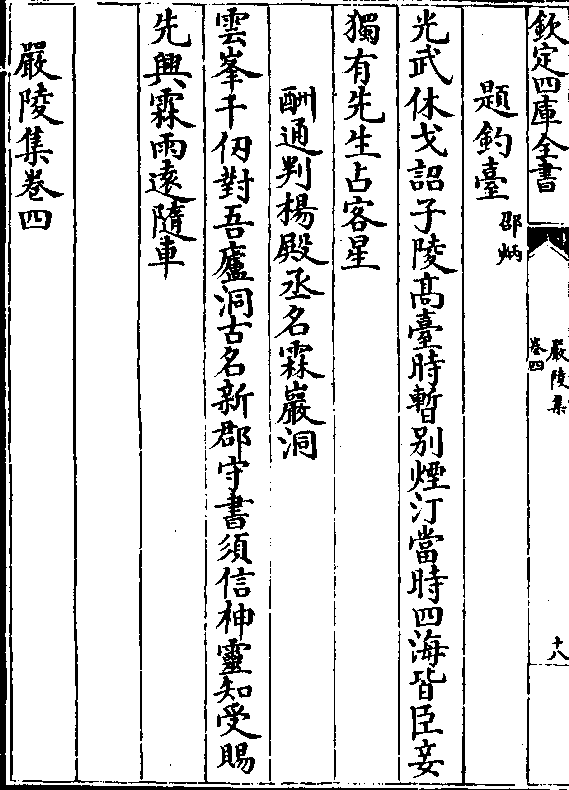 欽定四庫全書
嚴陵集
卷四
十八
題釣臺 邵炳
光武休戈詔子陵髙臺時暫别煙汀當時四海皆臣妾
獨有先生占客星
酬通判楊殿丞名霖巖洞
雲峯千仭對吾廬洞古名新郡守書須信神靈知受賜
先興霖雨逺隨車
嚴陵集卷四